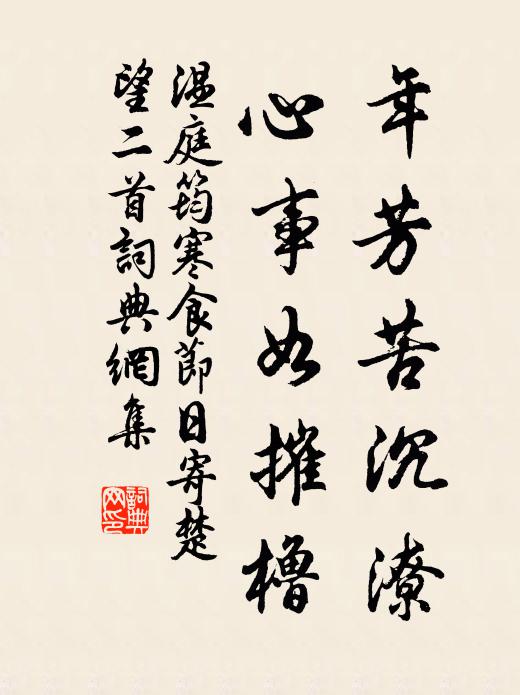 年芳苦沉潦
心事如摧橹
温庭筠寒食節日寄楚
望二首詞典網集
詞典网印